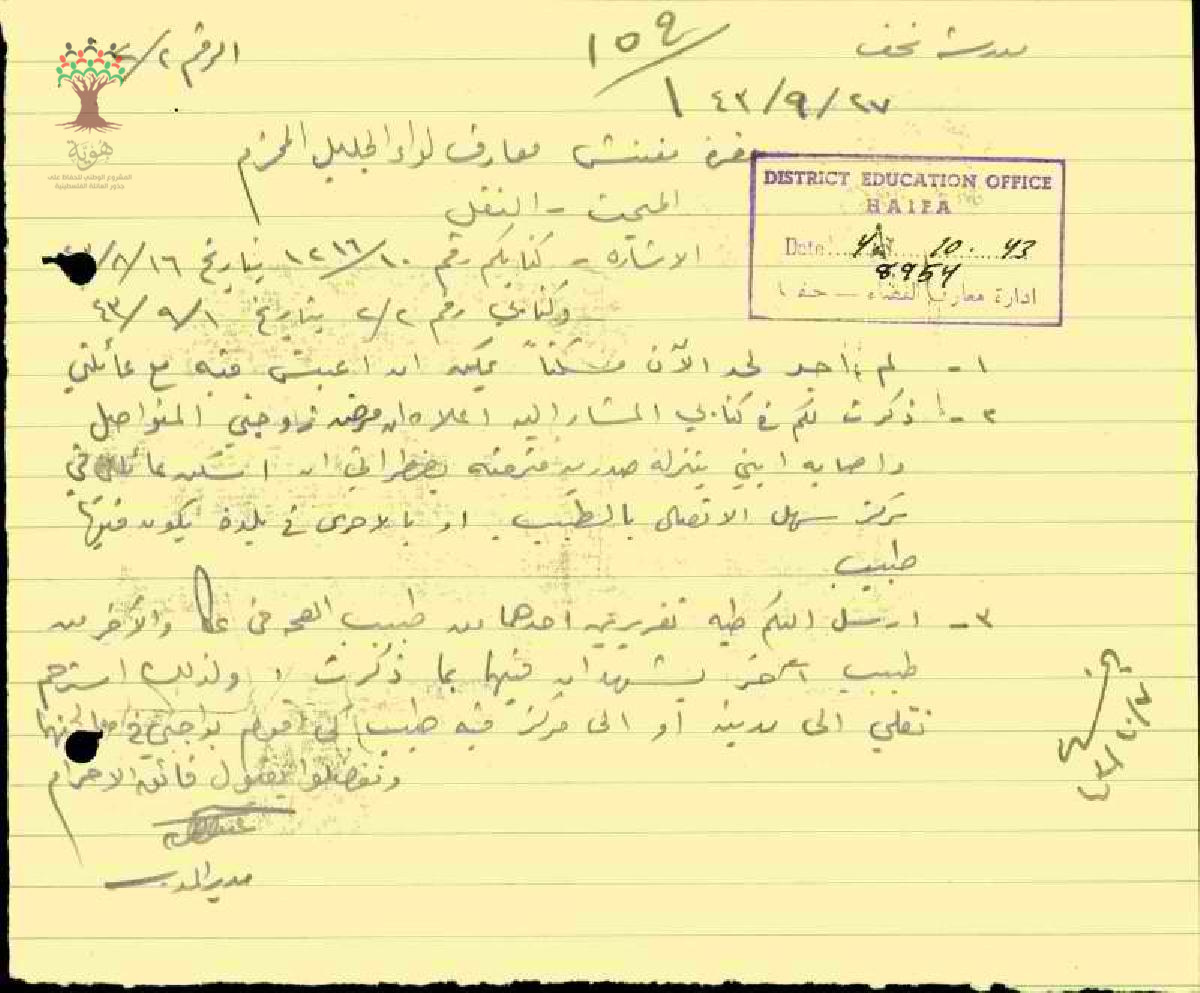 مدرسة نحف
١٥٩
الرقم ٢/
٤٣/٩/٢٧
حضرة مفتش معارف لواء الجليل المحترم
المبحث - النقل
الاشارة - كتابكم رقم ١٢١٦/١٠ بتاريخ /٨/١٦
وكتابي رقم ٢/٢ بتاريخ ٤٣/٩/١
DISTRICT EDUCATION OFFICE
HAIFA
Date 10. 43
8954
ادارة معارف القضاء — حيفا
١ - لم اجد لحد الآن مسكناً يمكن ان اعيش فيه مع عائلتي
٢ - ذكرت لكم في كتابي المشار اليه اعلاه ان مرض زوجتي المتواصل
واصابة ابني بنزلة صدرية مزمنة يضطراني ان اسكن عائلتي في
مركز سهل الاتصال بالطبيب او بالاحرى في بلدة يكون فيها
طبيب
٣ - ارسل اليكم طيه تقريرين احدهما من طبيب الصحة في عكا والآخر من
طبيب آخر يشهدان فيها بما ذكرت ولذلك استرحم
نقلي الى مدينة أو الى مركز فيه طبيب كي اقوم بواجبي في
وتفضلوا بقبول فائق الاحترام
مدير المدرسة
هوية
المشروع الوطني للحفاظ على
جذور العائلة الفلسطينية